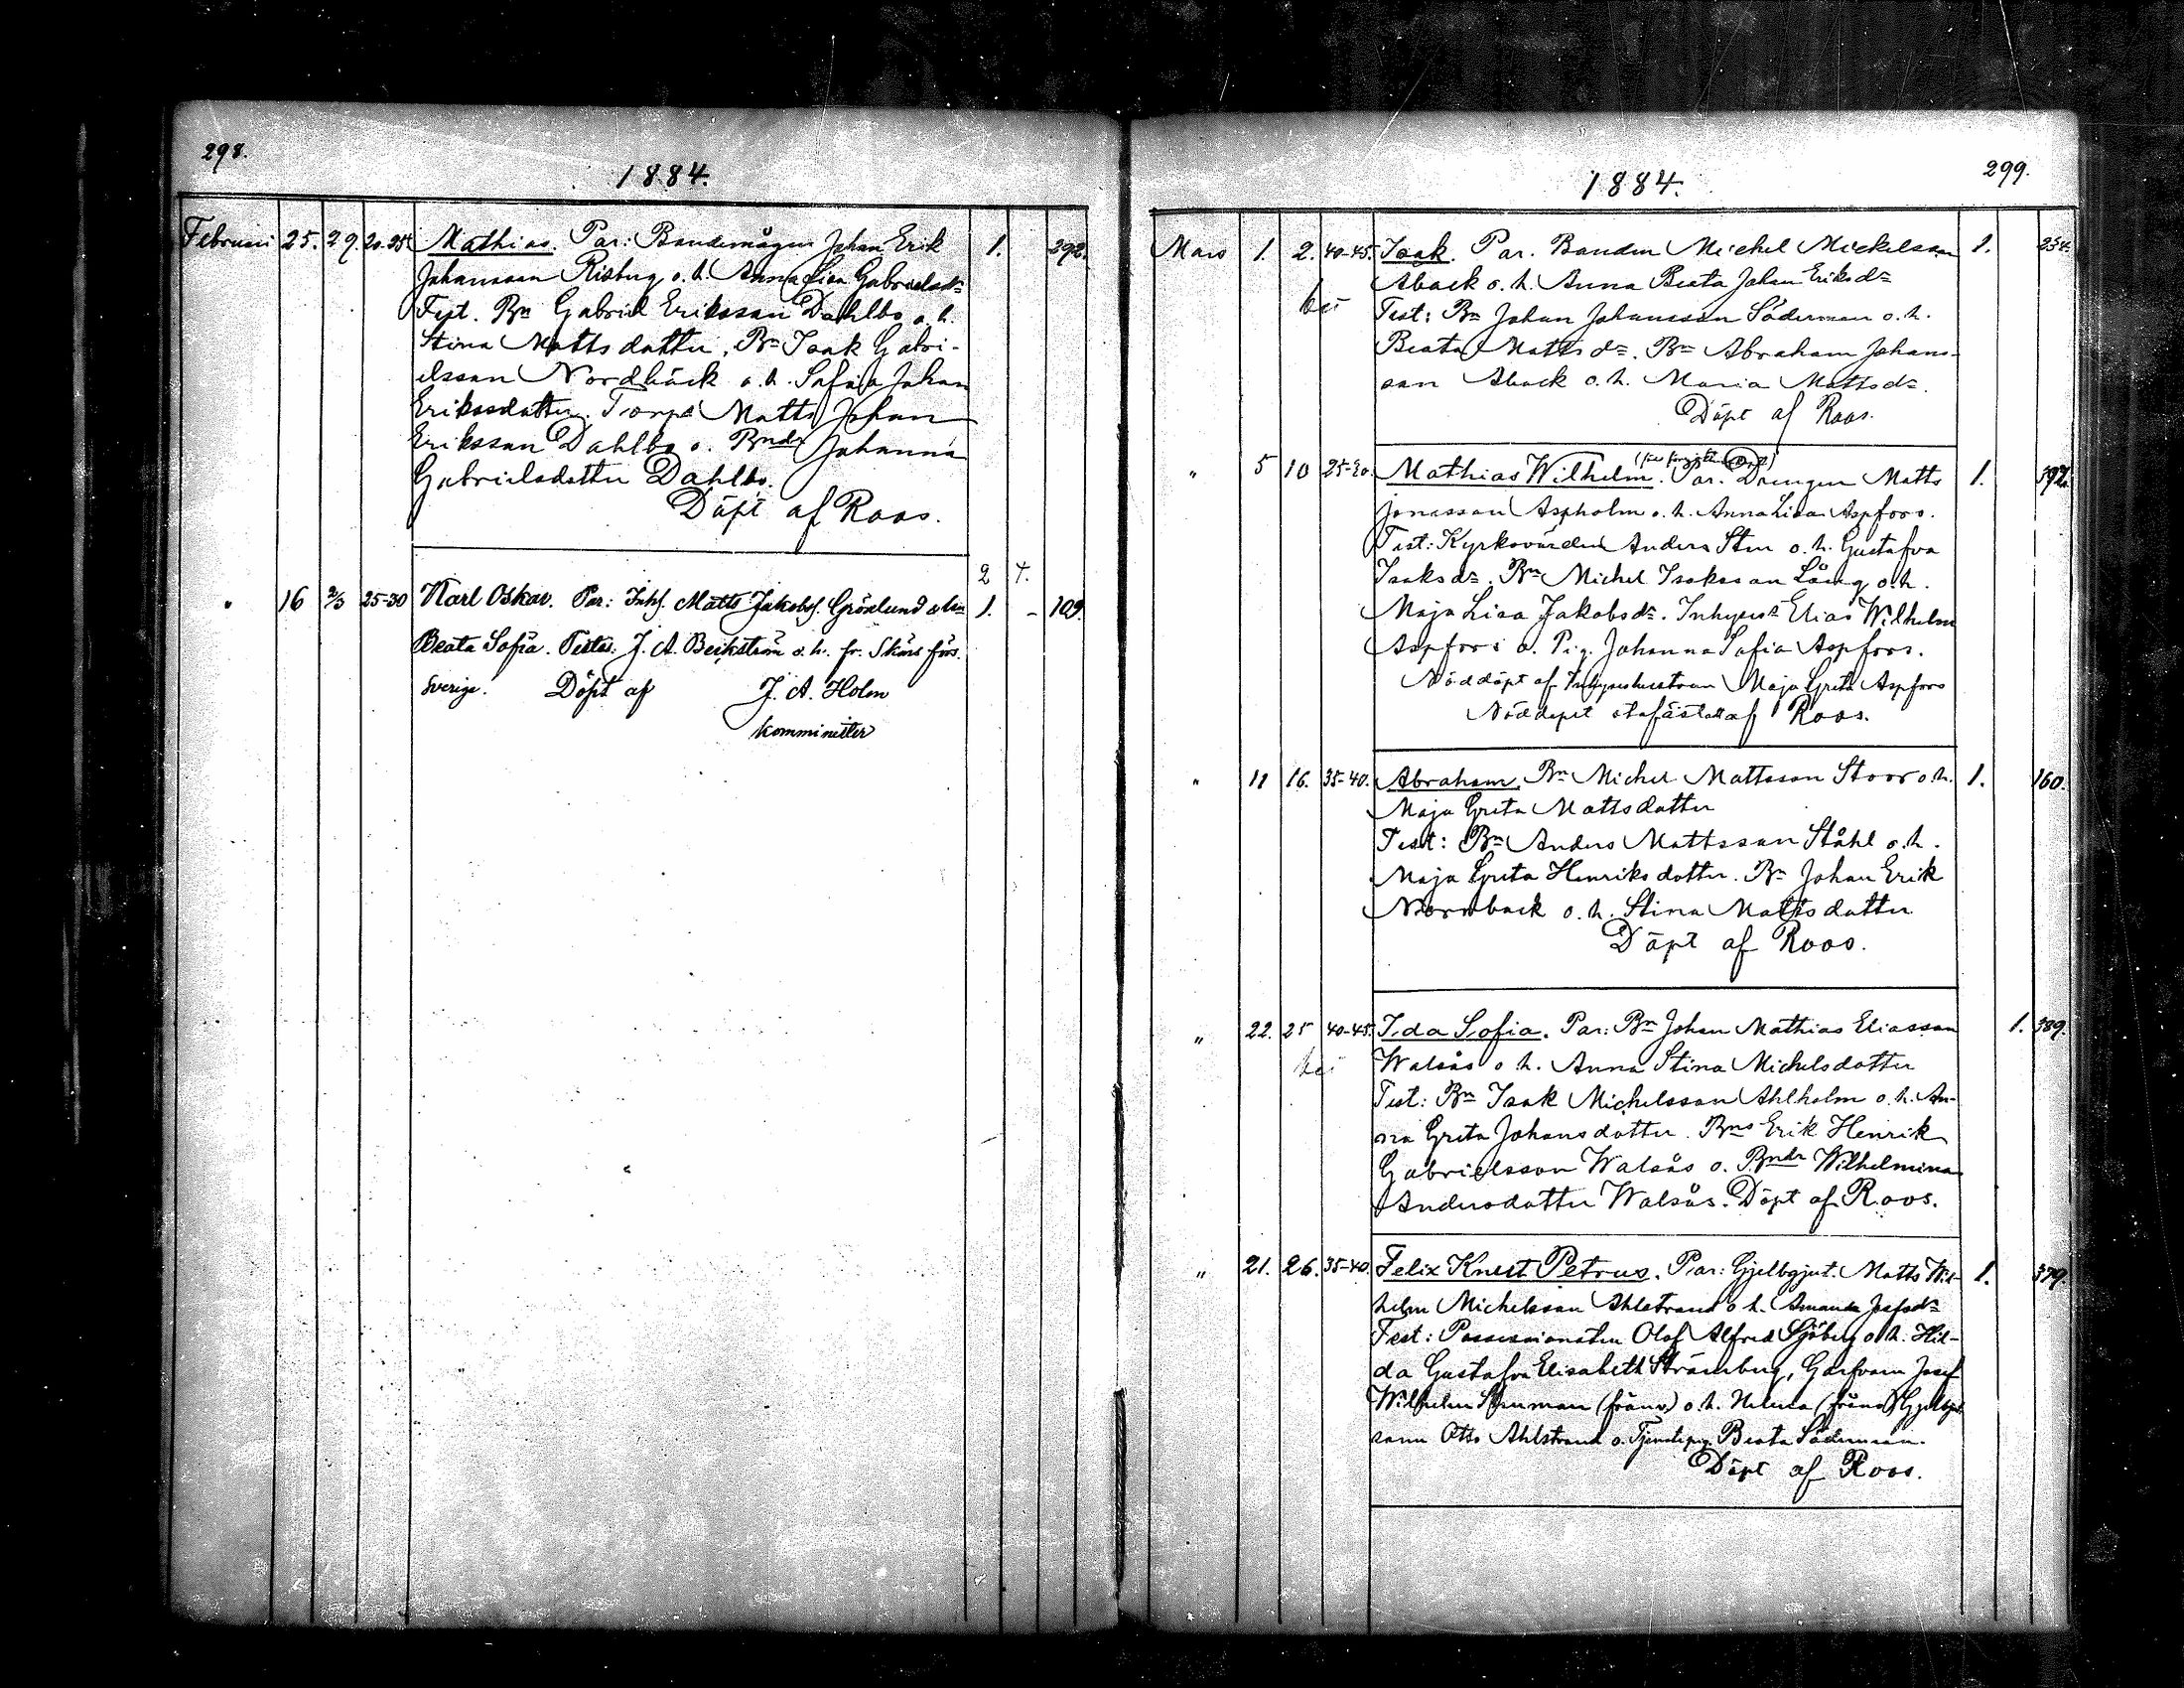 298.
1884.
Februari 25. 29. 20-25 Mathias. Par: Bondemågen Johan Erik 1. 292.
Johansson Risberg o. h. Anna Lisa Gabrielsdr
Test. Bn Gabriel Eriksson Dahlbo o. h.
Stina Mattsdotter, Bn Isak Gabri-
elsson Nordbäck o. h. Sofia Johan
Eriksdotter. Torp. Matts Johan
Eriksson Dahlbo o. Bndr Johanna
Gabrielsdotter Dahlbo.
Döpt af Roos.
2 4.
" 16 2/3 25-30 Karl Oskar. Par: Inhs. Matts Jakobs. Grönlund 1. - 109.
Beata Sofia. Testes: J. A. Beckström o. h. fr. Skörs förs.
Sverige. Döpt af J. A. Holm
komminister
299.
1884.
Mars 1. 2. 40-45. Isak. Par. Bonden Michel Mickelsson 1. 234.
Aback o. h. Anna Beata Johan Eriksdr
Test: Bn Johan Johansson Söderman o. h.
Beata Mattsdr. Bn Abraham Johans-
son Aback o. h. Maria Mattsdr.
Döpt af Roos.
" 5 10 25-30. Mathias Wilhelm. Par. Drengen Matts 1. 392.
Jonasson Aspholm o. h. Anna Lisa Aspfors.
Test: Kyrkovärden Anders Sten o. h. Gustafva
Isaksdr. Bn Michel Isaksson Lång o. h.
Maja Lisa Jakobsdr. Inhyses Elias Wilhelm
Aspfors o. Pig. Johanna Sofia Aspfors.
Nöddöpt af Inhyseshustrun Maja Greta Aspfors
Nöddopet stafästadt af Roos.
" 11 16. 35-40. Abraham. Bn Michel Mattsson Stoor o. h. 1. 160.
Maja Greta Mattsdotter
Test: Bn Anders Mattsson Ståhl o. h.
Maja Greta Henriksdotter. Bn Johan Erik
Norrback o. h. Stina Mattsdotter
Döpt af Roos.
" 22. 25 40-45. Ida Sofia. Par: Bn Johan Mathias Eliasson 1. 389.
Walsås o. h. Anna Stina Michelsdotter
Test: Bn Isak Michelsson Ahlholm o. h. An-
na Greta Johansdotter. Bns Erik Henrik
Gabrielsson Walsås o. Bndr Wilhelmina
Andersdotter Walsås. Döpt af Roos.
" 21. 26. 35-40. Felix Knut Petrus. Par: Gjelbgjut. Matts Wil- 1. 379.
helm Michelsson Ahlstrand o. h. Amanda Josefsdr
Test: Possessionaten Olof Alfred Sjöberg o. h. Hil-
da Gustafva Elisabeth Strömberg, Garfvaren Josef
Wilhelm Stenman (frånv) o. h. Helena (frånv) Gjelbgjut.
sonn Otto Ahlstrand o. Tjenstepig. Beata Söderman.
Döpt af Roos.